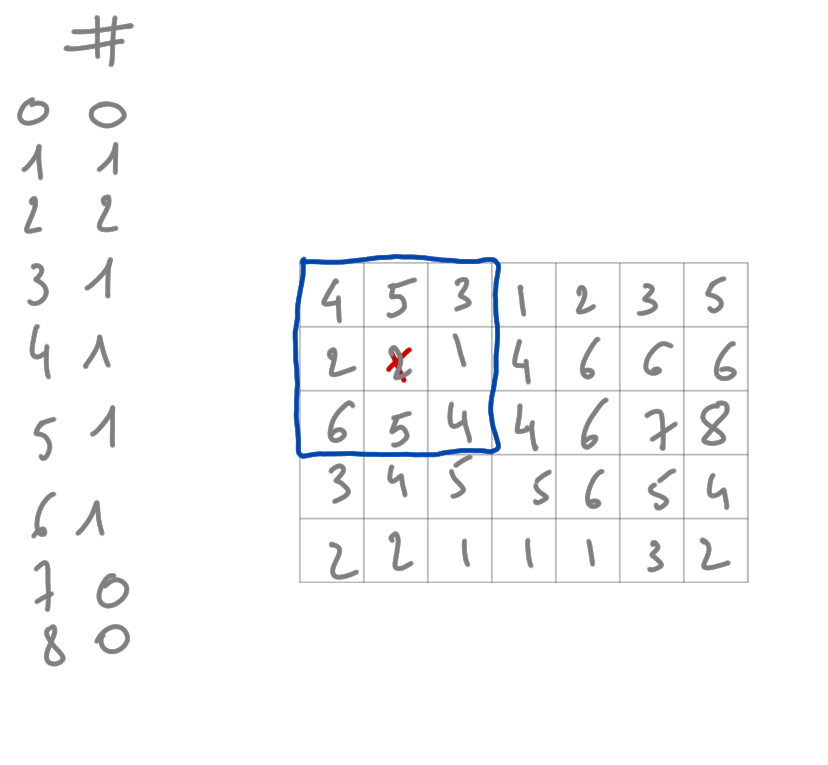 #
0 0
1 1
2 2
3 1
4 1
5 1
6 1
7 0
8 0
4 5 3 1 2 3 5
2 2 1 4 6 6 6
6 5 4 4 6 7 8
3 4 5 5 6 5 4
2 2 1 1 1 3 2